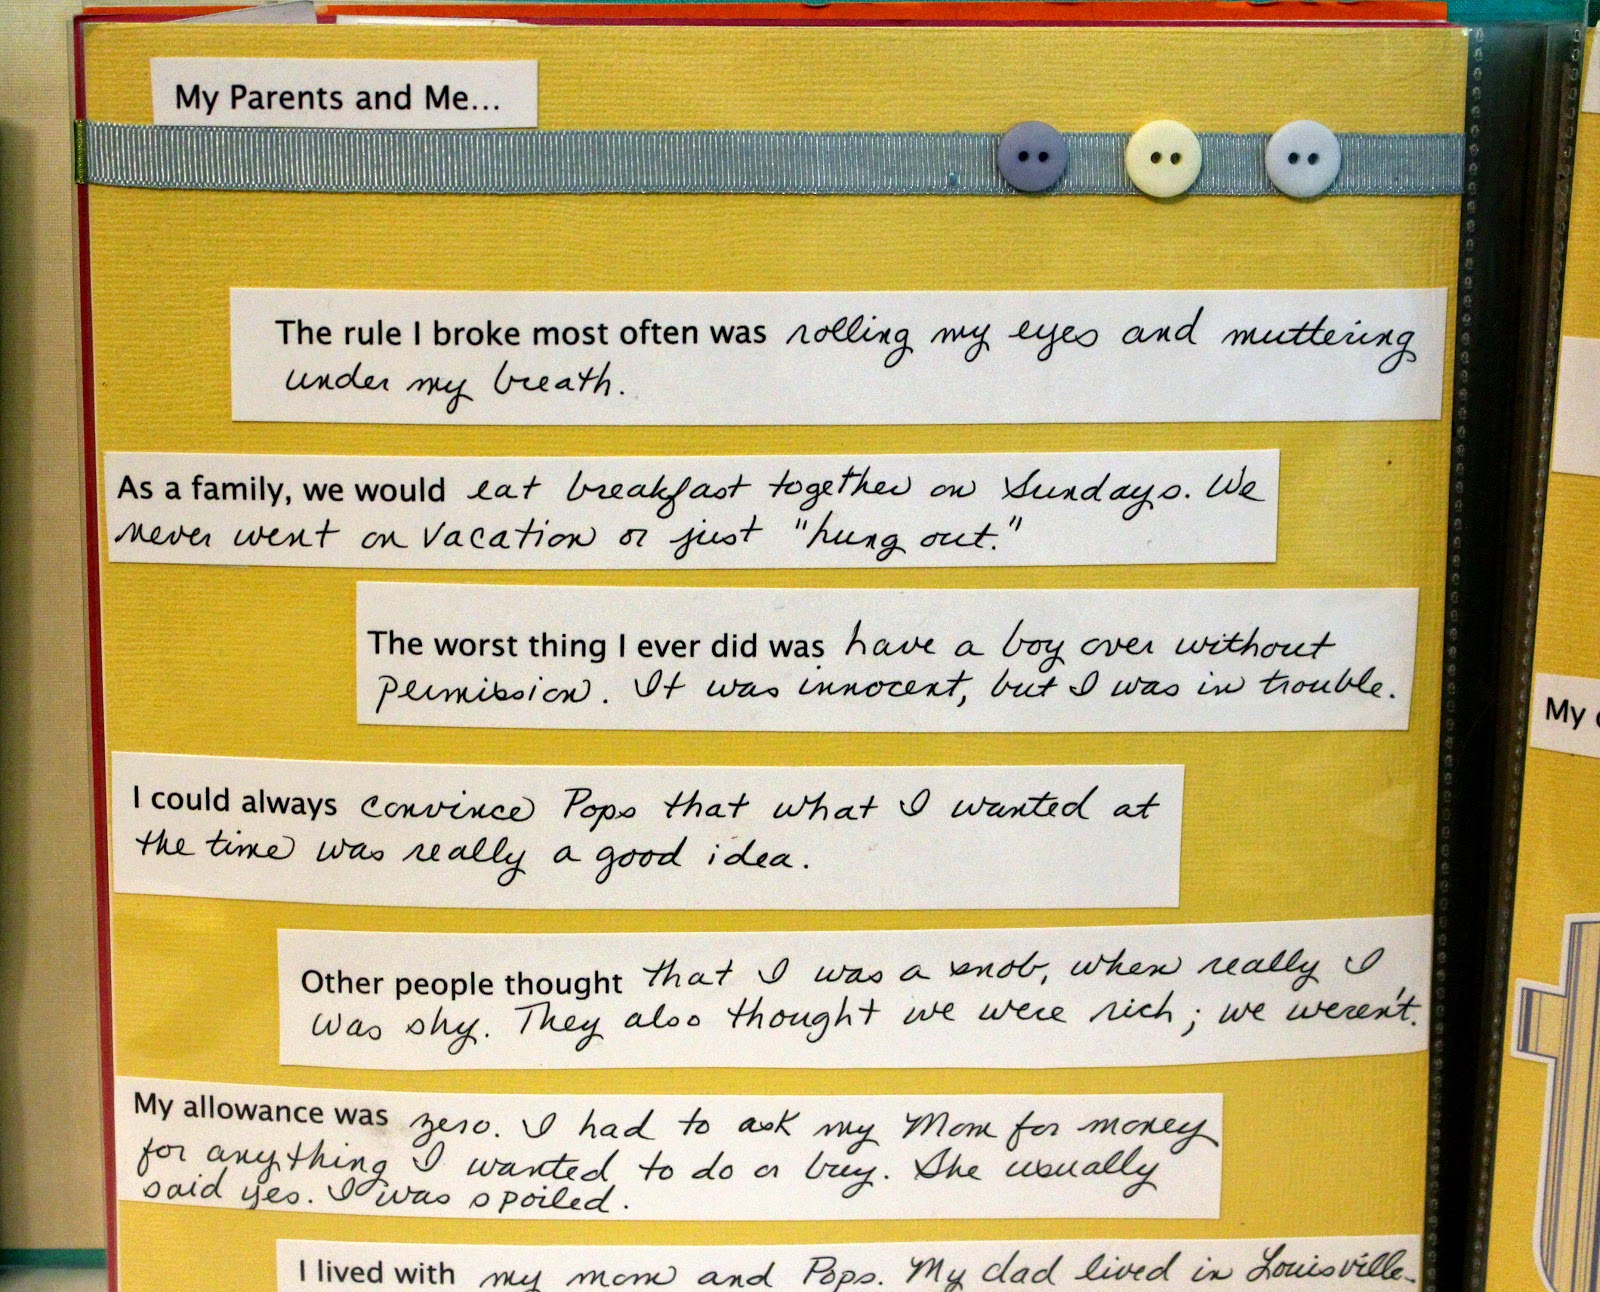 My Parents and Me...
The rule I broke most often was rolling my eyes and muttering
under my breath.
As a family, we would eat breakfast together on Sundays. We
never went on vacation or just "hung out."
The worst thing I ever did was have a boy over without
permission. It was innocent, but I was in trouble.
I could always convince Pops that what I wanted at
the time was really a good idea.
Other people thought that I was a snob, when really I
was shy. They also thought we were rich; we weren't.
My allowance was zero. I had to ask my Mom for money
for anything I wanted to do or buy. She usually
said yes. I was spoiled.
I lived with my mom and Pops. My dad lived in Louisville.
My